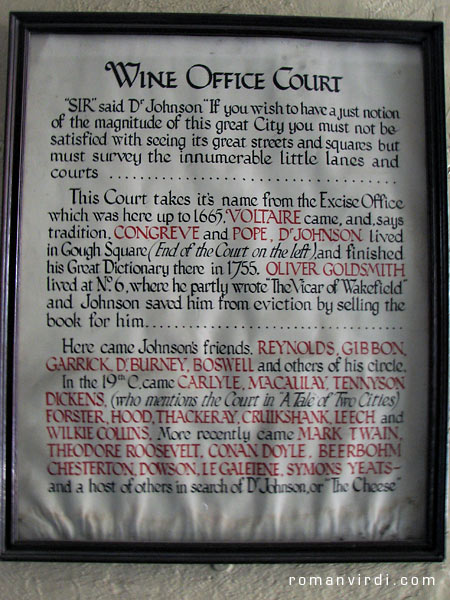 WINE OFFICE COURT
"SIR" said Dr Johnson "If you wish to have a just notion
of the magnitude of this great City you must not be
satisfied with seeing its great streets and squares but
must survey the innumerable little lanes and
courts ..............................
This Court takes it's name from the Excise Office
which was here up to 1665. VOLTAIRE came, and, says
tradition, CONGREVE and POPE, Dr JOHNSON lived
in Gough Square (End of the Court on the left), and finished
his Great Dictionary there in 1755. OLIVER GOLDSMITH
lived at No. 6, where he partly wrote "The Vicar of Wakefield"
and Johnson saved him from eviction by selling the
book for him..............................
Here came Johnson's friends, REYNOLDS, GIBBON,
GARRICK, Dr BURNEY, BOSWELL and others of his circle.
In the 19th C. came CARLYLE, MACAULAY, TENNYSON
DICKENS, (who mentions the Court in "A Tale of Two Cities)
FORSTER, HOOD, THACKERAY, CRUIKSHANK, LEECH and
WILKIE COLLINS. More recently came MARK TWAIN,
THEODORE ROOSEVELT, CONAN DOYLE, BEERBOHM
CHESTERTON, DOWSON, LE GALEIENE, SYMONS YEATS—
and a host of others in search of Dr Johnson, or "The Cheese"
romanvirdi.com